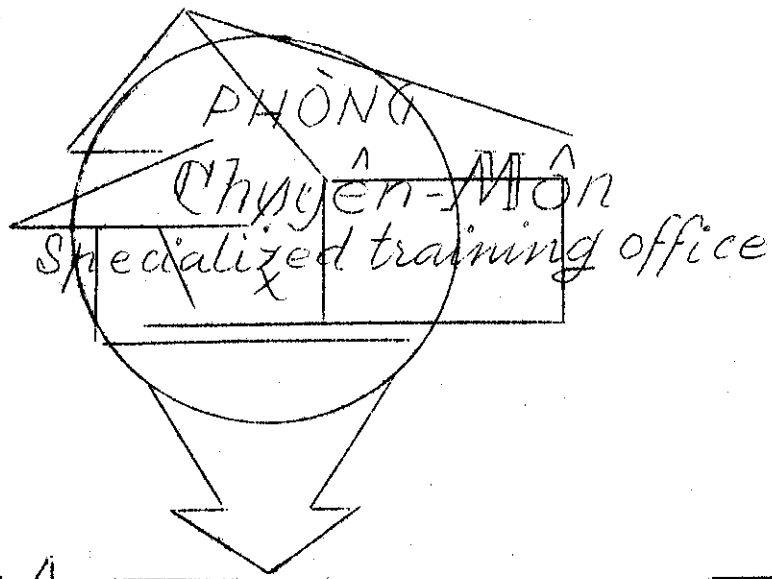 PHÒNG
Chuyên-Môn
Specialized training office